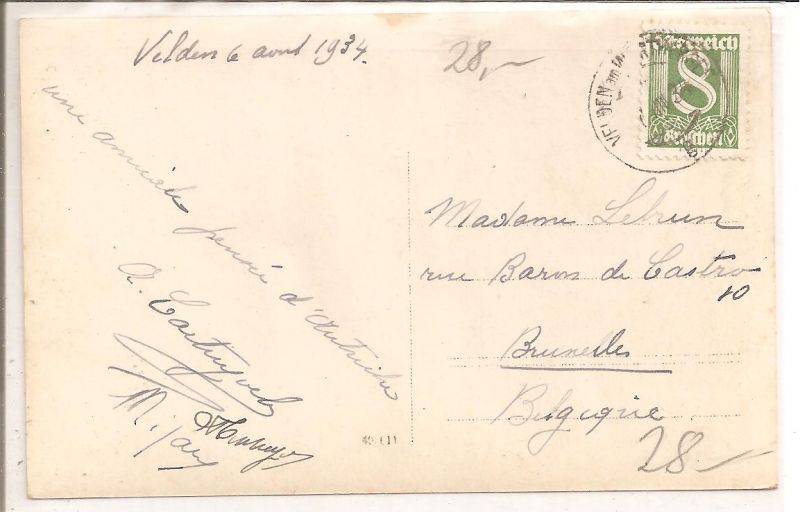 Velden 6 avout 1934.
28,-
VELDEN am W
Österreich
8
Groschen
une amicale pensée d'Autriche
Madame Lebrun
rue Baron de Castro
10
Bruxelles
Belgique
28-
49 (1)